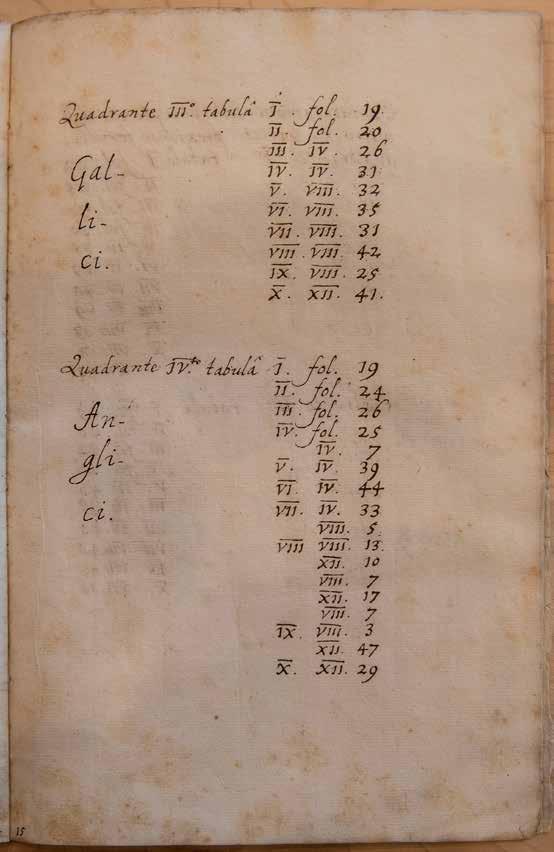 Quadrante III.º tabulâ I. fol. 19.
II. fol. 20
III. IV. 26
Gal- IV. IV. 31.
V. VIII. 32
li- VI. VIII. 35
VII. VIII. 31
ci. VIII. VIII. 42
IX. VIII. 25
X. XII. 41.
Quadrante IV.to tabulâ I. fol. 19
II. fol. 24
An- III. fol. 26
IV. fol. 25
gli- IV. 7
V. IV. 39
VI. IV. 44
ci. VII. IV. 33
VIII. 5.
VIII VIII. 13.
XII. 10
VIII. 7
XII. 17
VIII. 7
IX. VIII. 3
XII. 47
X. XII. 29
15